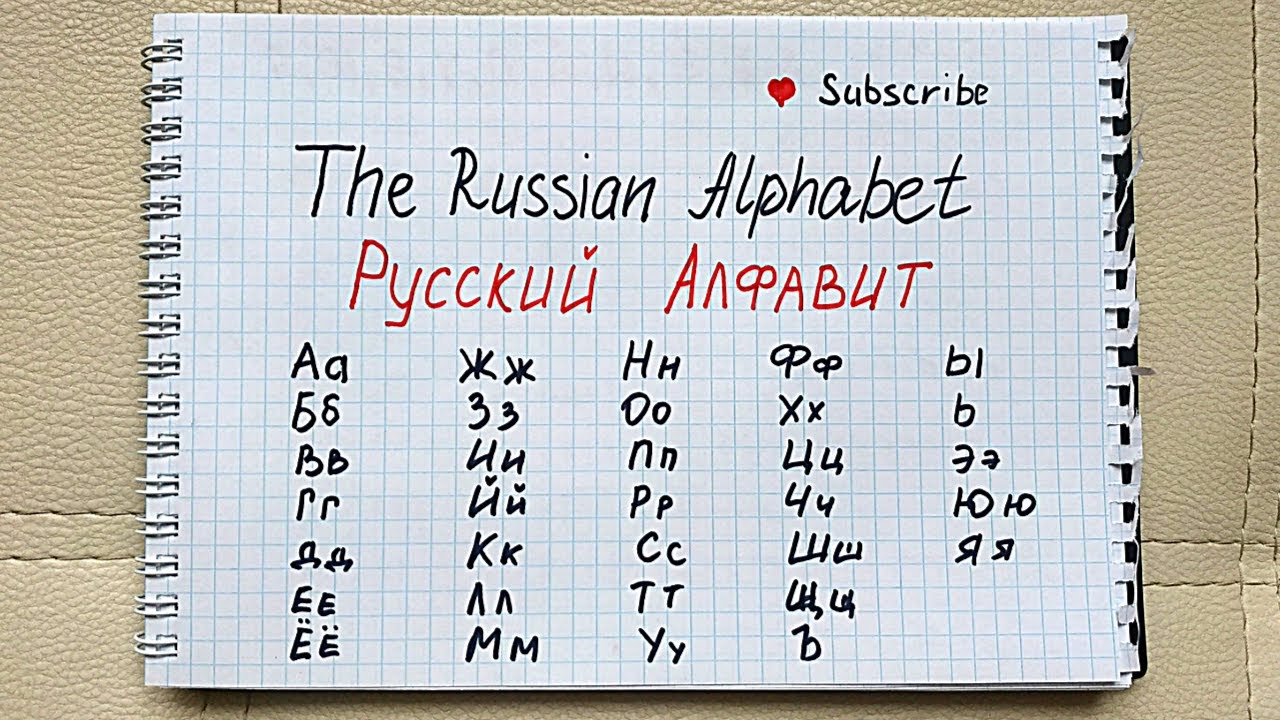 Subscribe
The Russian Alphabet
Русский Алфавит
Аа Жж Нн Фф Ы
Бб Зз Оо Хх Ь
Вв Ии Пп Цц Ээ
Гг Йй Рр Чч Юю
Дд Кк Сс Шш Яя
Ее Лл Тт Щщ
Ёё Мм Уу Ъ